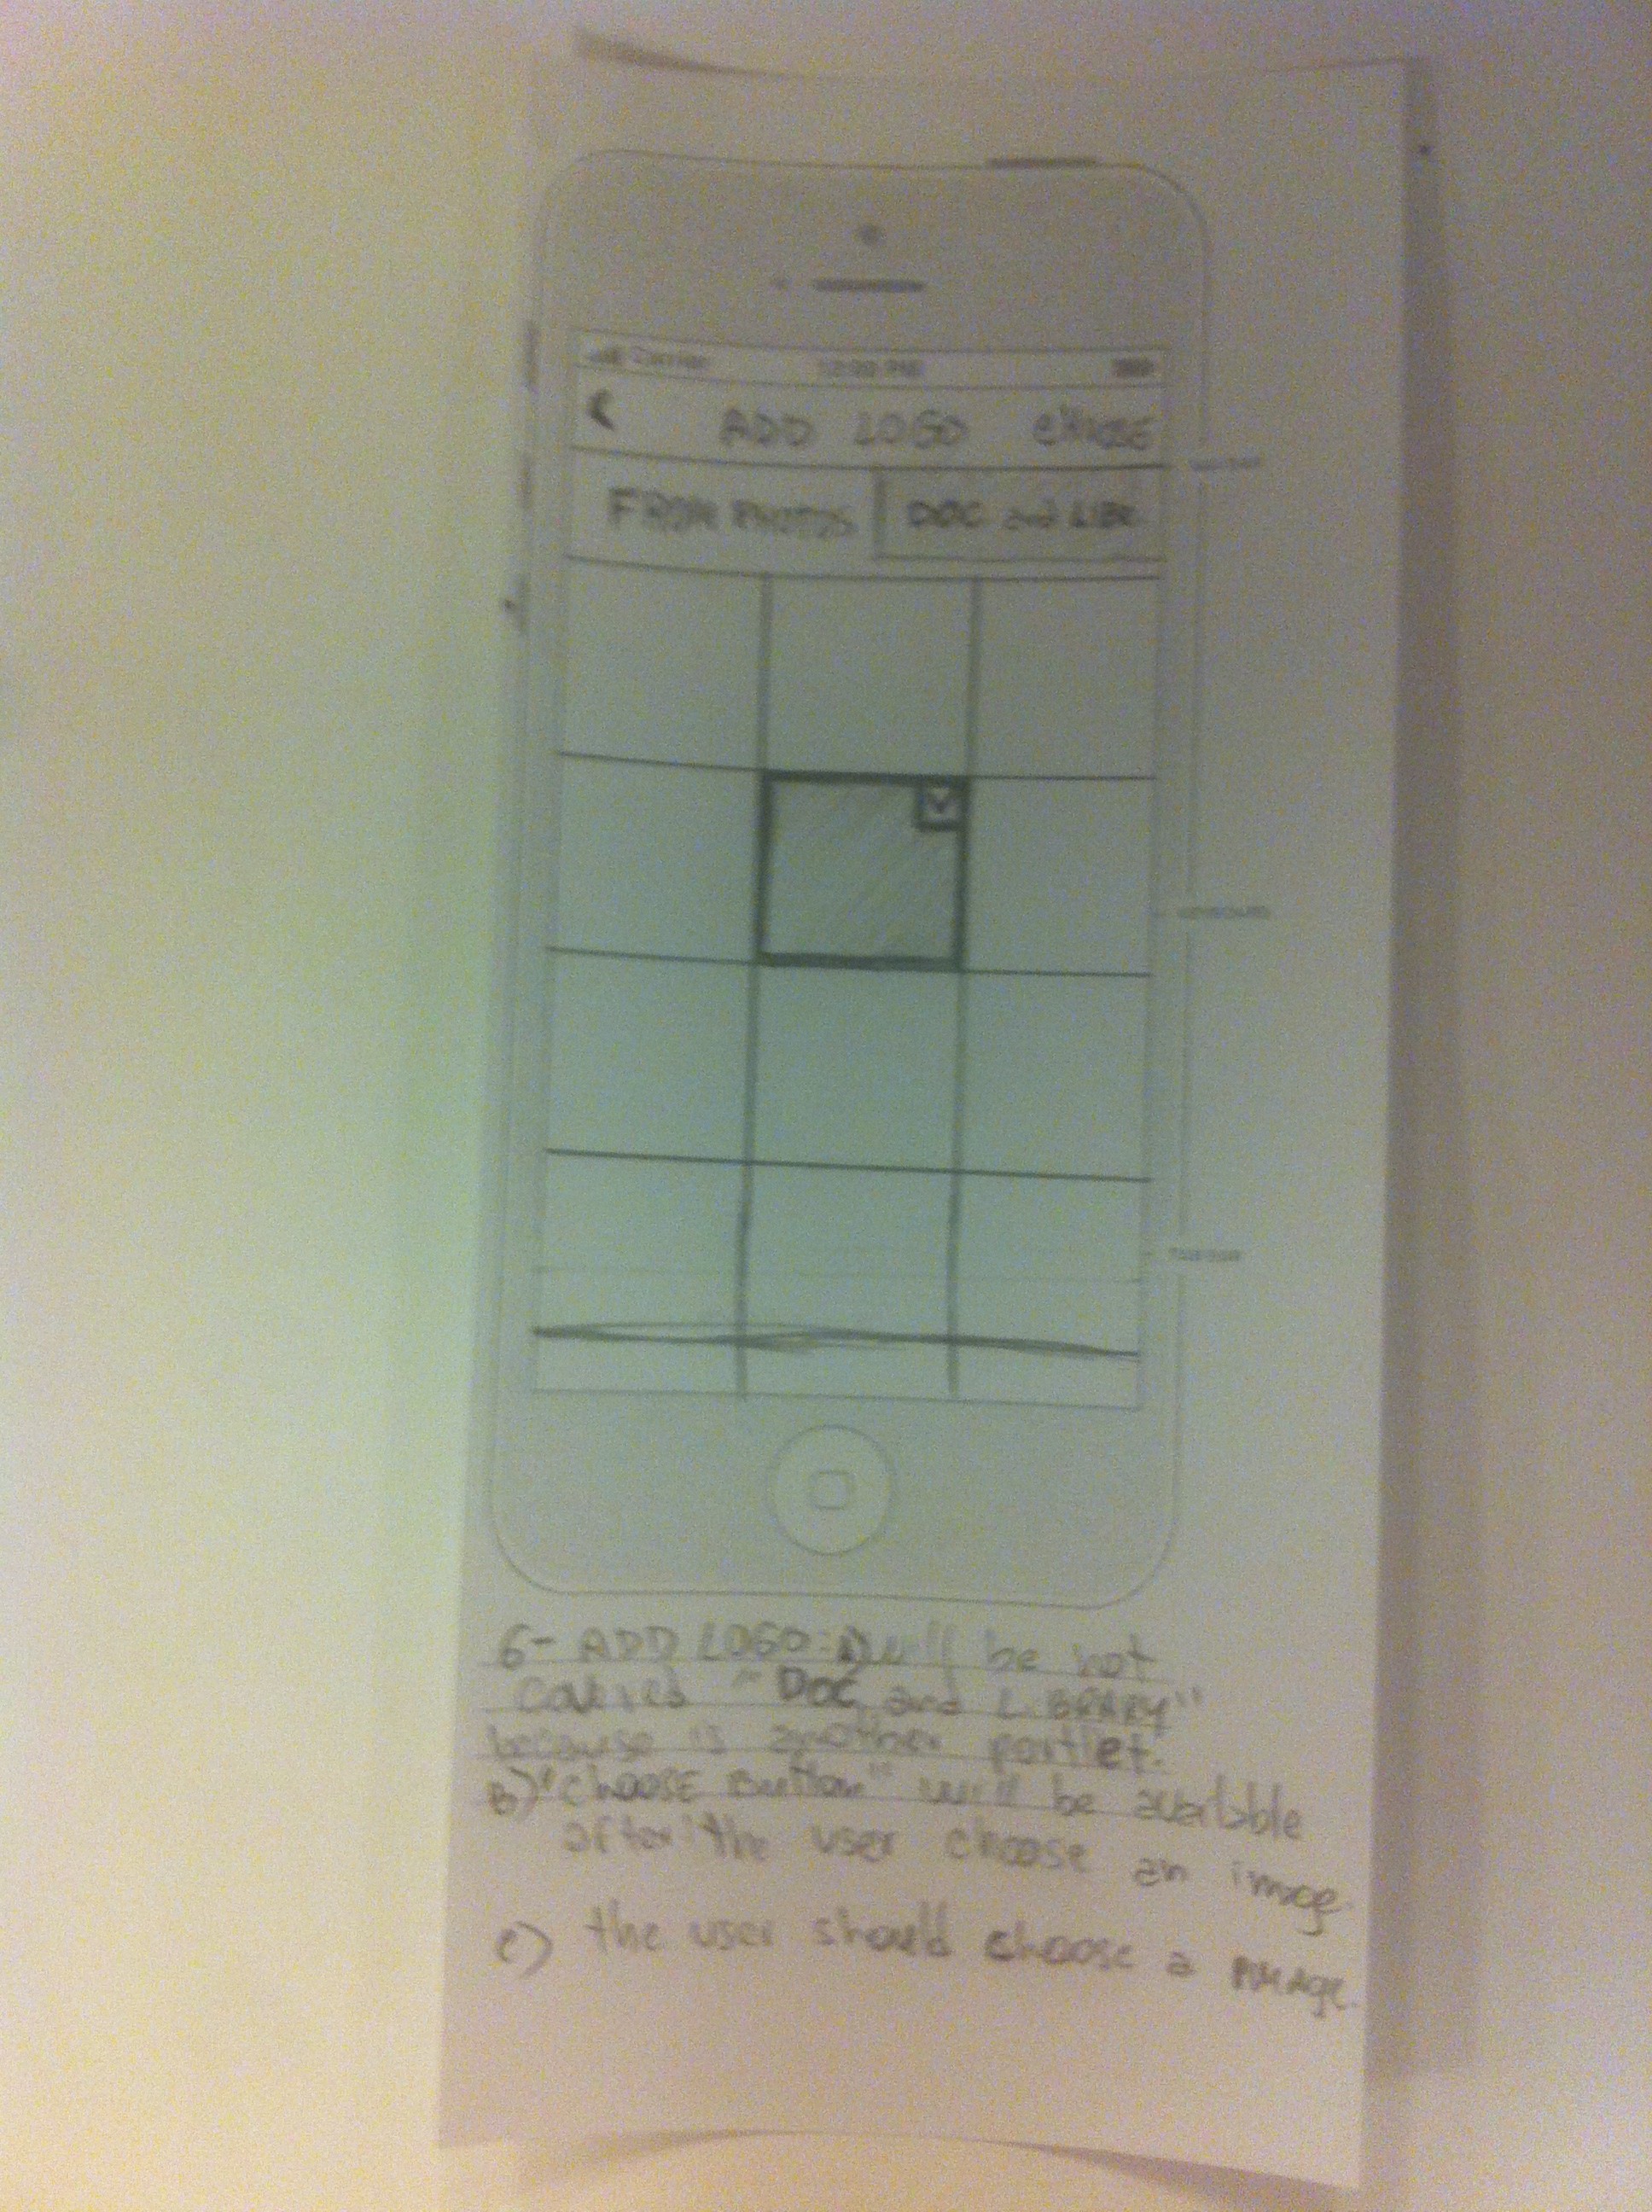 Carrier 12:00 PM
ADD LOGO CHOOSE
FROM PHOTOS DOC and LIBR
KEYBOARD
TAB BAR
6- ADD LOGO: will be not
"DOC and LIBRARY"
because is another portlet.
B) "CHOOSE Button" will be available
after the user choose an image.
c) the user should choose a